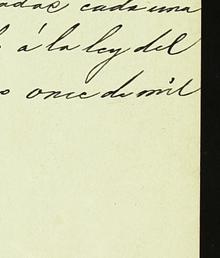 cada una
á la ley del
once de mil